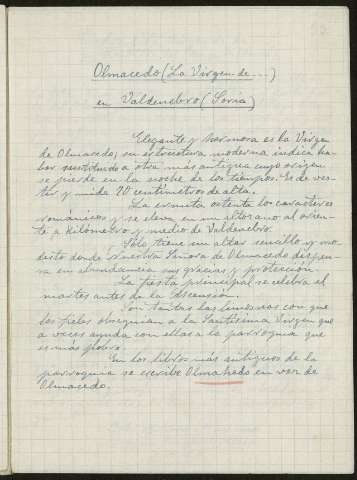 Olmacedo (La Virgen de ....)
en Valdenebro (Soria)
Elegante y hermosa es la Virgen
de Olmacedo; su estructura moderna indica ha-
ber sustituido a otra más antigua cuyo origen
se pierde en la noche de los tiempos. Es de ves-
tir y mide 70 centímetros de alta.
La ermita ostenta los caracteres
románicos y se eleva en un altozano al orien-
te a kilómetro y medio de Valdenebro.
Sólo tiene un altar sencillo y mo-
desto donde Nuestra Señora de Olmacedo dispen-
sa en abundancia sus gracias y protección.
La fiesta principal se celebra el
martes antes de la Ascensión.
Son tantas las limosnas con que
los fieles obsequian a la Santísima Virgen que
a veces ayuda con ellas a la parroquia que
es más pobre.
En los libros más antiguos de la
parroquia se escribe Olmahedo en vez de
Olmacedo.